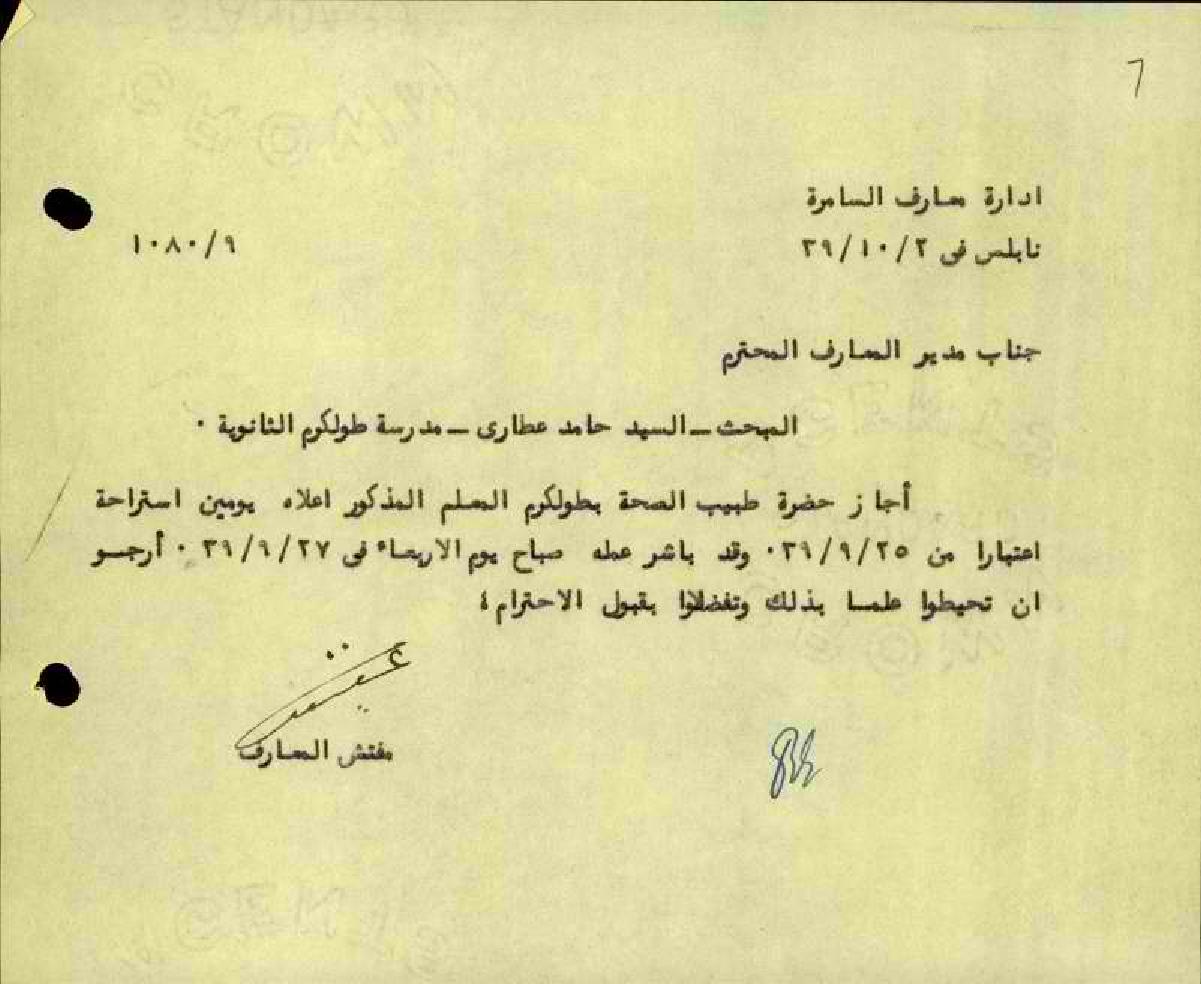 7
ادارة معارف السامرة
نابلس فى ٣٩/١٠/٢
١٠٨٠/٩
جناب مدير المعارف المحترم
المبحث – السيد حامد عطارى – مدرسة طولكرم الثانوية ٠
أجاز حضرة طبيب الصحة بطولكرم المعلم المذكور اعلاه يومين استراحة
اعتبارا من ٣٩/٩/٢٥٠ وقد باشر عمله صباح يوم الاربعاء فى ٣٩/٩/٢٧ ٠ أرجو
ان تحيطوا علما بذلك وتفضلوا بقبول الاحترام ؛
مفتش المعارف